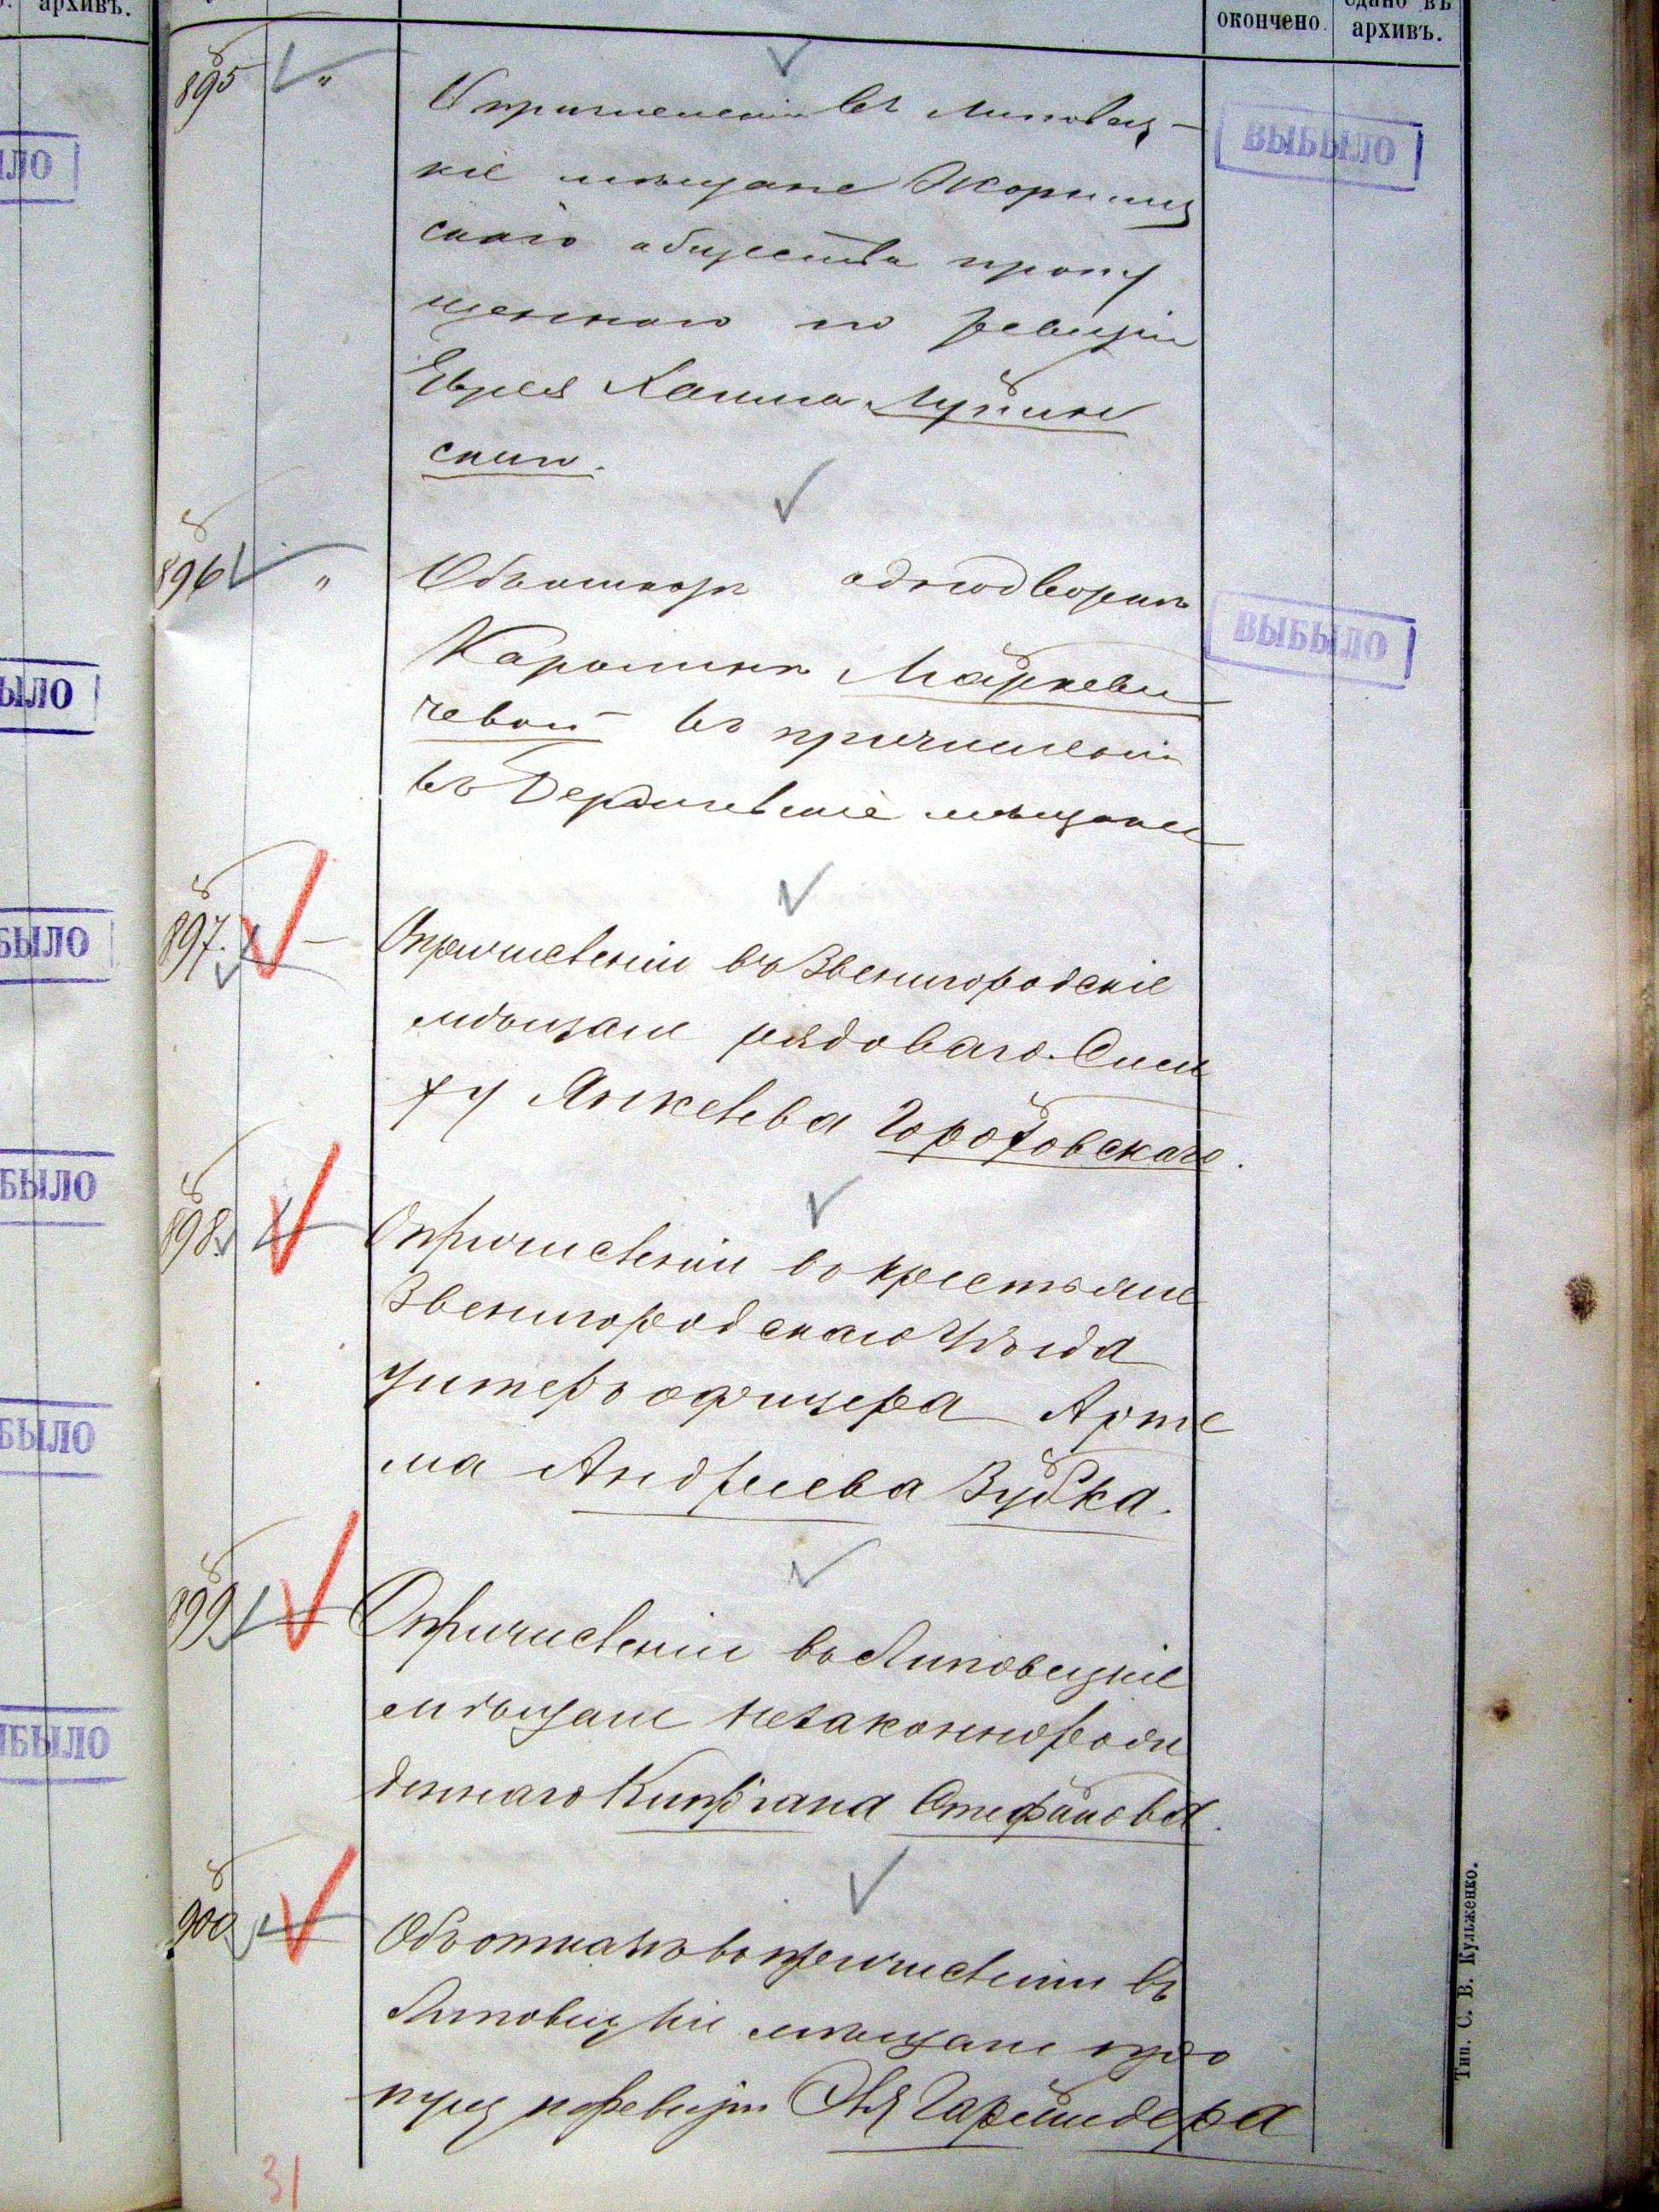 архивъ.
окончено.
сдано въ
архивъ.
895 "
О причисленіи въ Липовец-
кіе мѣщане Жорнищ
скаго общества пропу
щеннаго по ревизіи
Еврея Хаима Лупин
скаго.
ВЫБЫЛО
896 "
Объ отказѣ однодворкѣ
Каролинѣ Маркеви
чевой въ причисленіи
въ Бердичевскіе мѣщане
ВЫБЫЛО
897. –
О причисленіи въ Звенигородскіе
мѣщане рядоваго
Янкелева Городовскаго.
898. –
О причисленіи въ крестьяне
Звенигородскаго уѣзда
унтеръ офицера Арте
ма Андреева Зубка.
899. –
О причисленіи въ Липовецкіе
мѣщане незаконнорож
деннаго Кипріана Стефанова.
900. –
Объ отказѣ въ причисленіи въ
Липовецкіе мѣщане про
пущ по ревизіи
31
ЫЛО
БЫЛО
БЫЛО
БЫЛО
ЫБЫЛО
Тип. С. В. Кульженко.